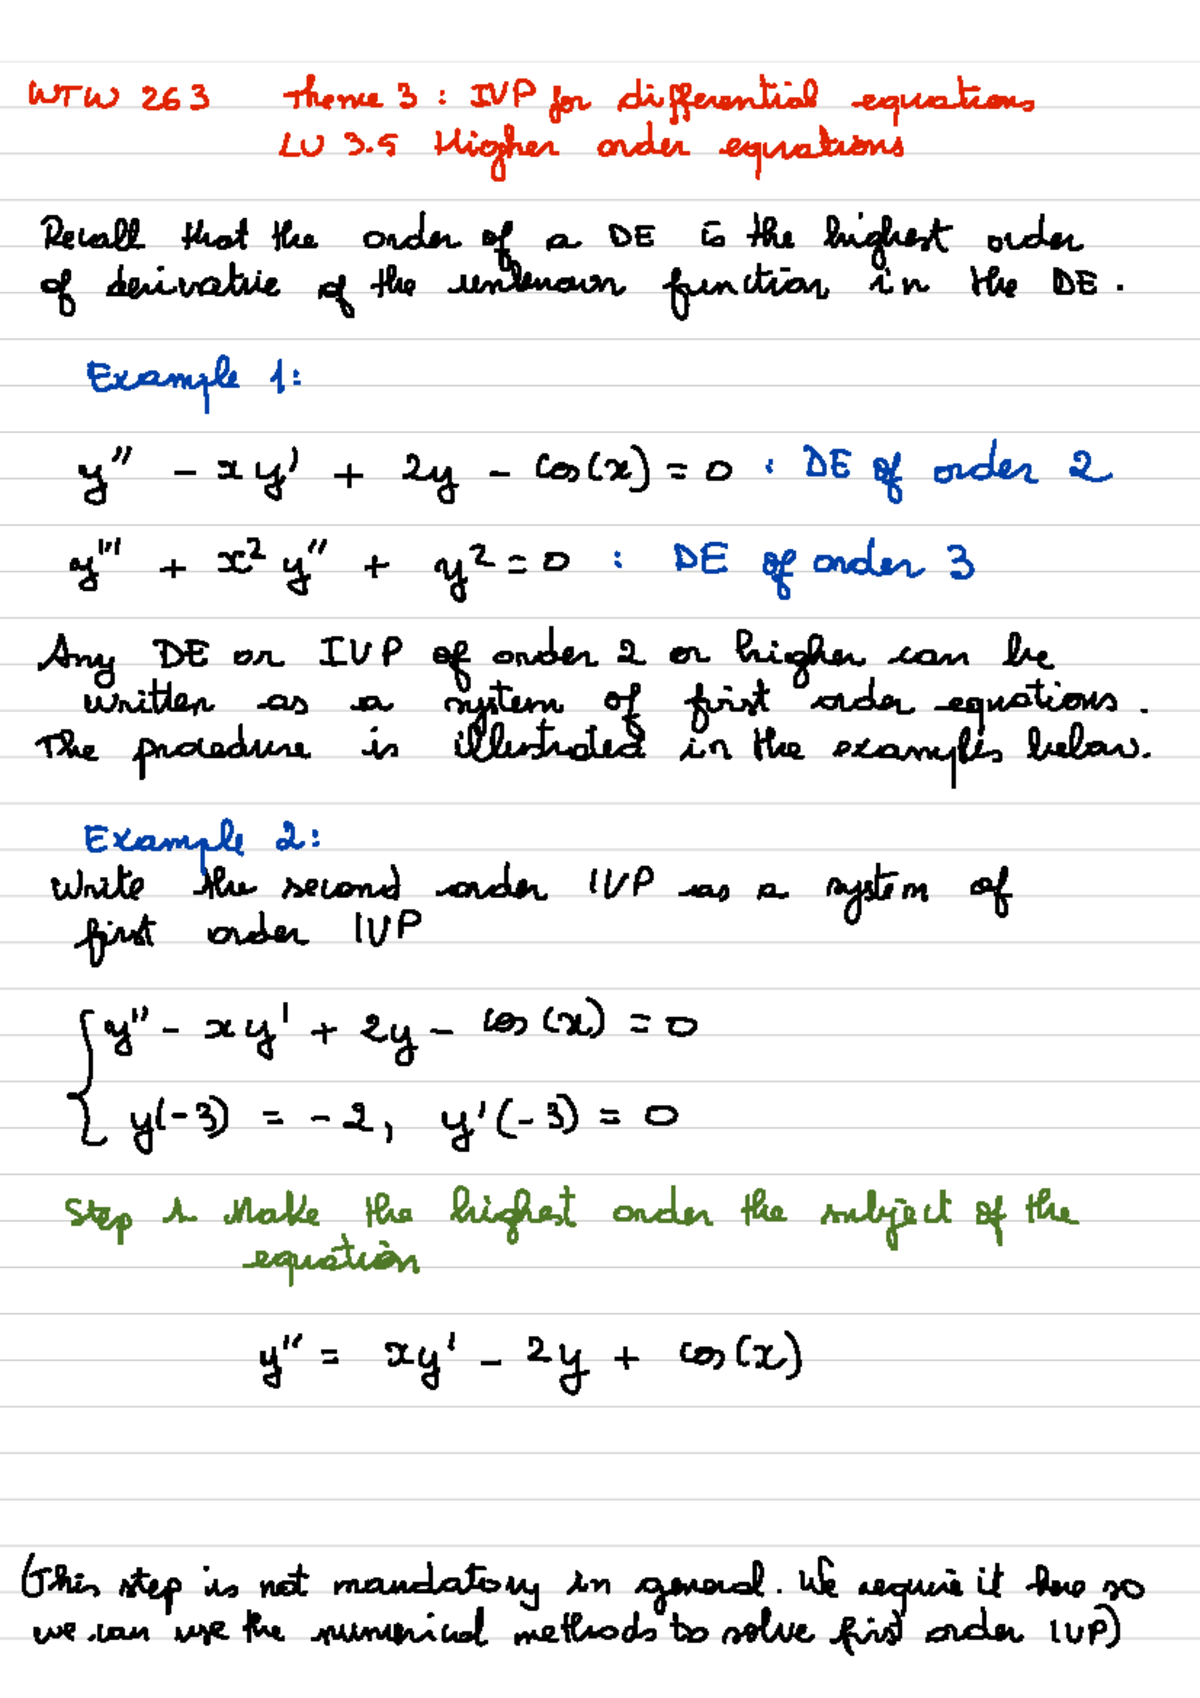 WTW 263 Theme 3 : IVP for differential equations
LU 3.5 Higher order equations
Recall that the order of a DE is the highest order
of derivative of the unknown function in the DE.
Example 1:
y'' - xy' + 2y - cos(x) = 0 : DE of order 2
y''' + x² y'' + y² = 0 : DE of order 3
Any DE or IVP of order 2 or higher can be
written as a system of first order equations.
The procedure is illustrated in the examples below.
Example 2:
Write the second order IVP as a system of
first order IVP
y'' - xy' + 2y - cos(x) = 0
y(-3) = -2, y'(-3) = 0
Step 1. Make the highest order the subject of the
equation
y'' = xy' - 2y + cos(x)
(This step is not mandatory in general. We require it here so
we can use the numerical methods to solve first order IVP)